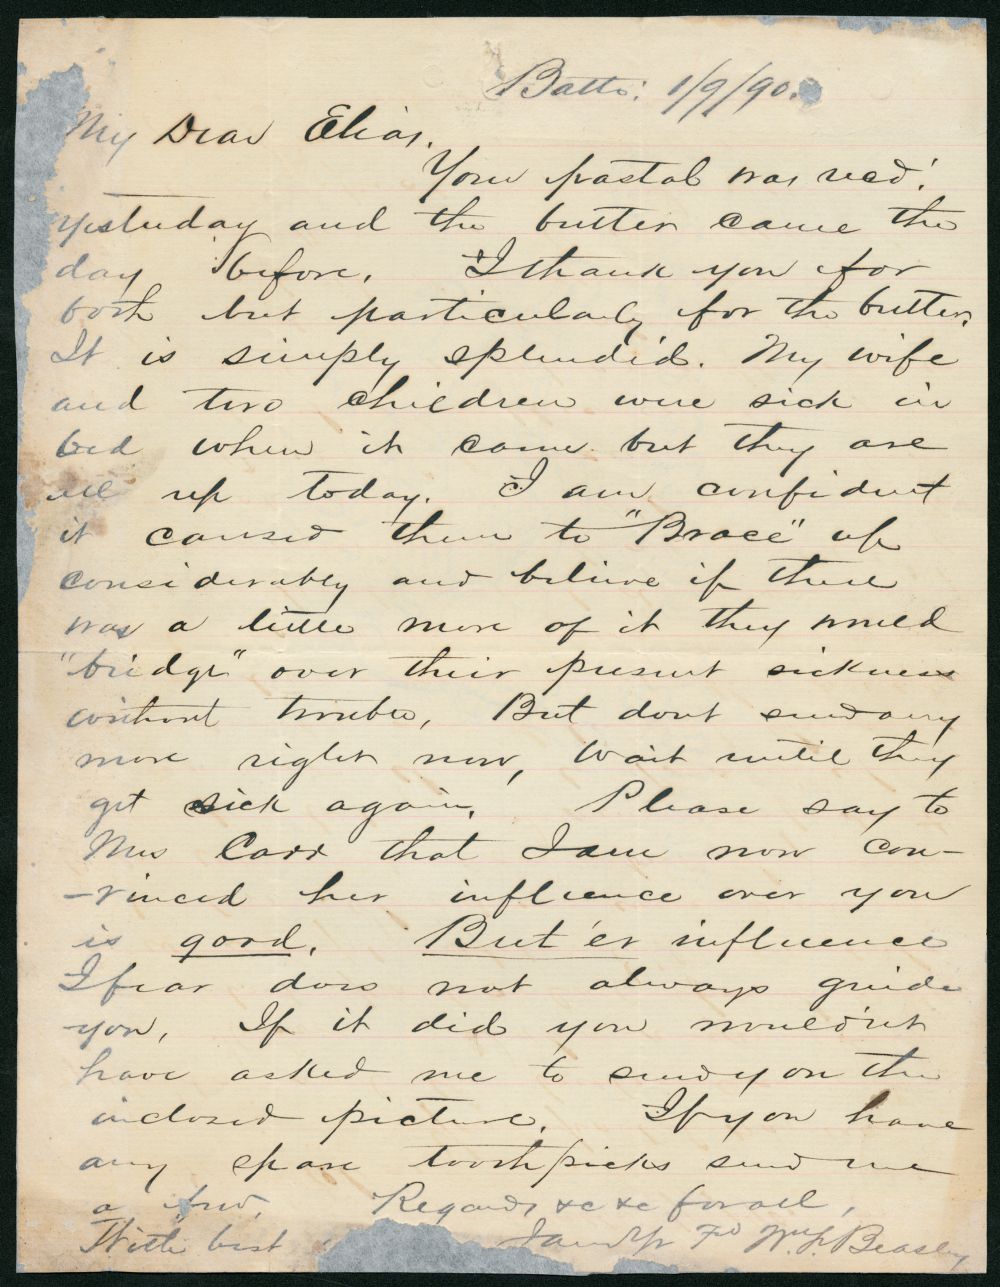 Balto: 1/9/90.
My Dear Elias,
Your postal was recd'.
yesterday and the butter came the
day before. I thank you for
both but particularly for the butter.
It is simply splendid. My wife
and two children were sick in
bed when it came but they are
all up today. I am confident
it caused them to "Brace" up
considerably and believe if there
was a little more of it they would
"bridge" over their present sickness
without trouble, But dont send any
more right now, Wait until they
get sick again. Please say to
Mrs Carr that I am now con-
-vinced her influence over you
is good. But'er influence
I fear does not always guide
you. If it did you would'nt
have asked me to send you the
inclosed picture. If you have
any spare toothpicks send me
a few. Regards &c &c for all,
With best I am Yr Fd Wm L. Beasley